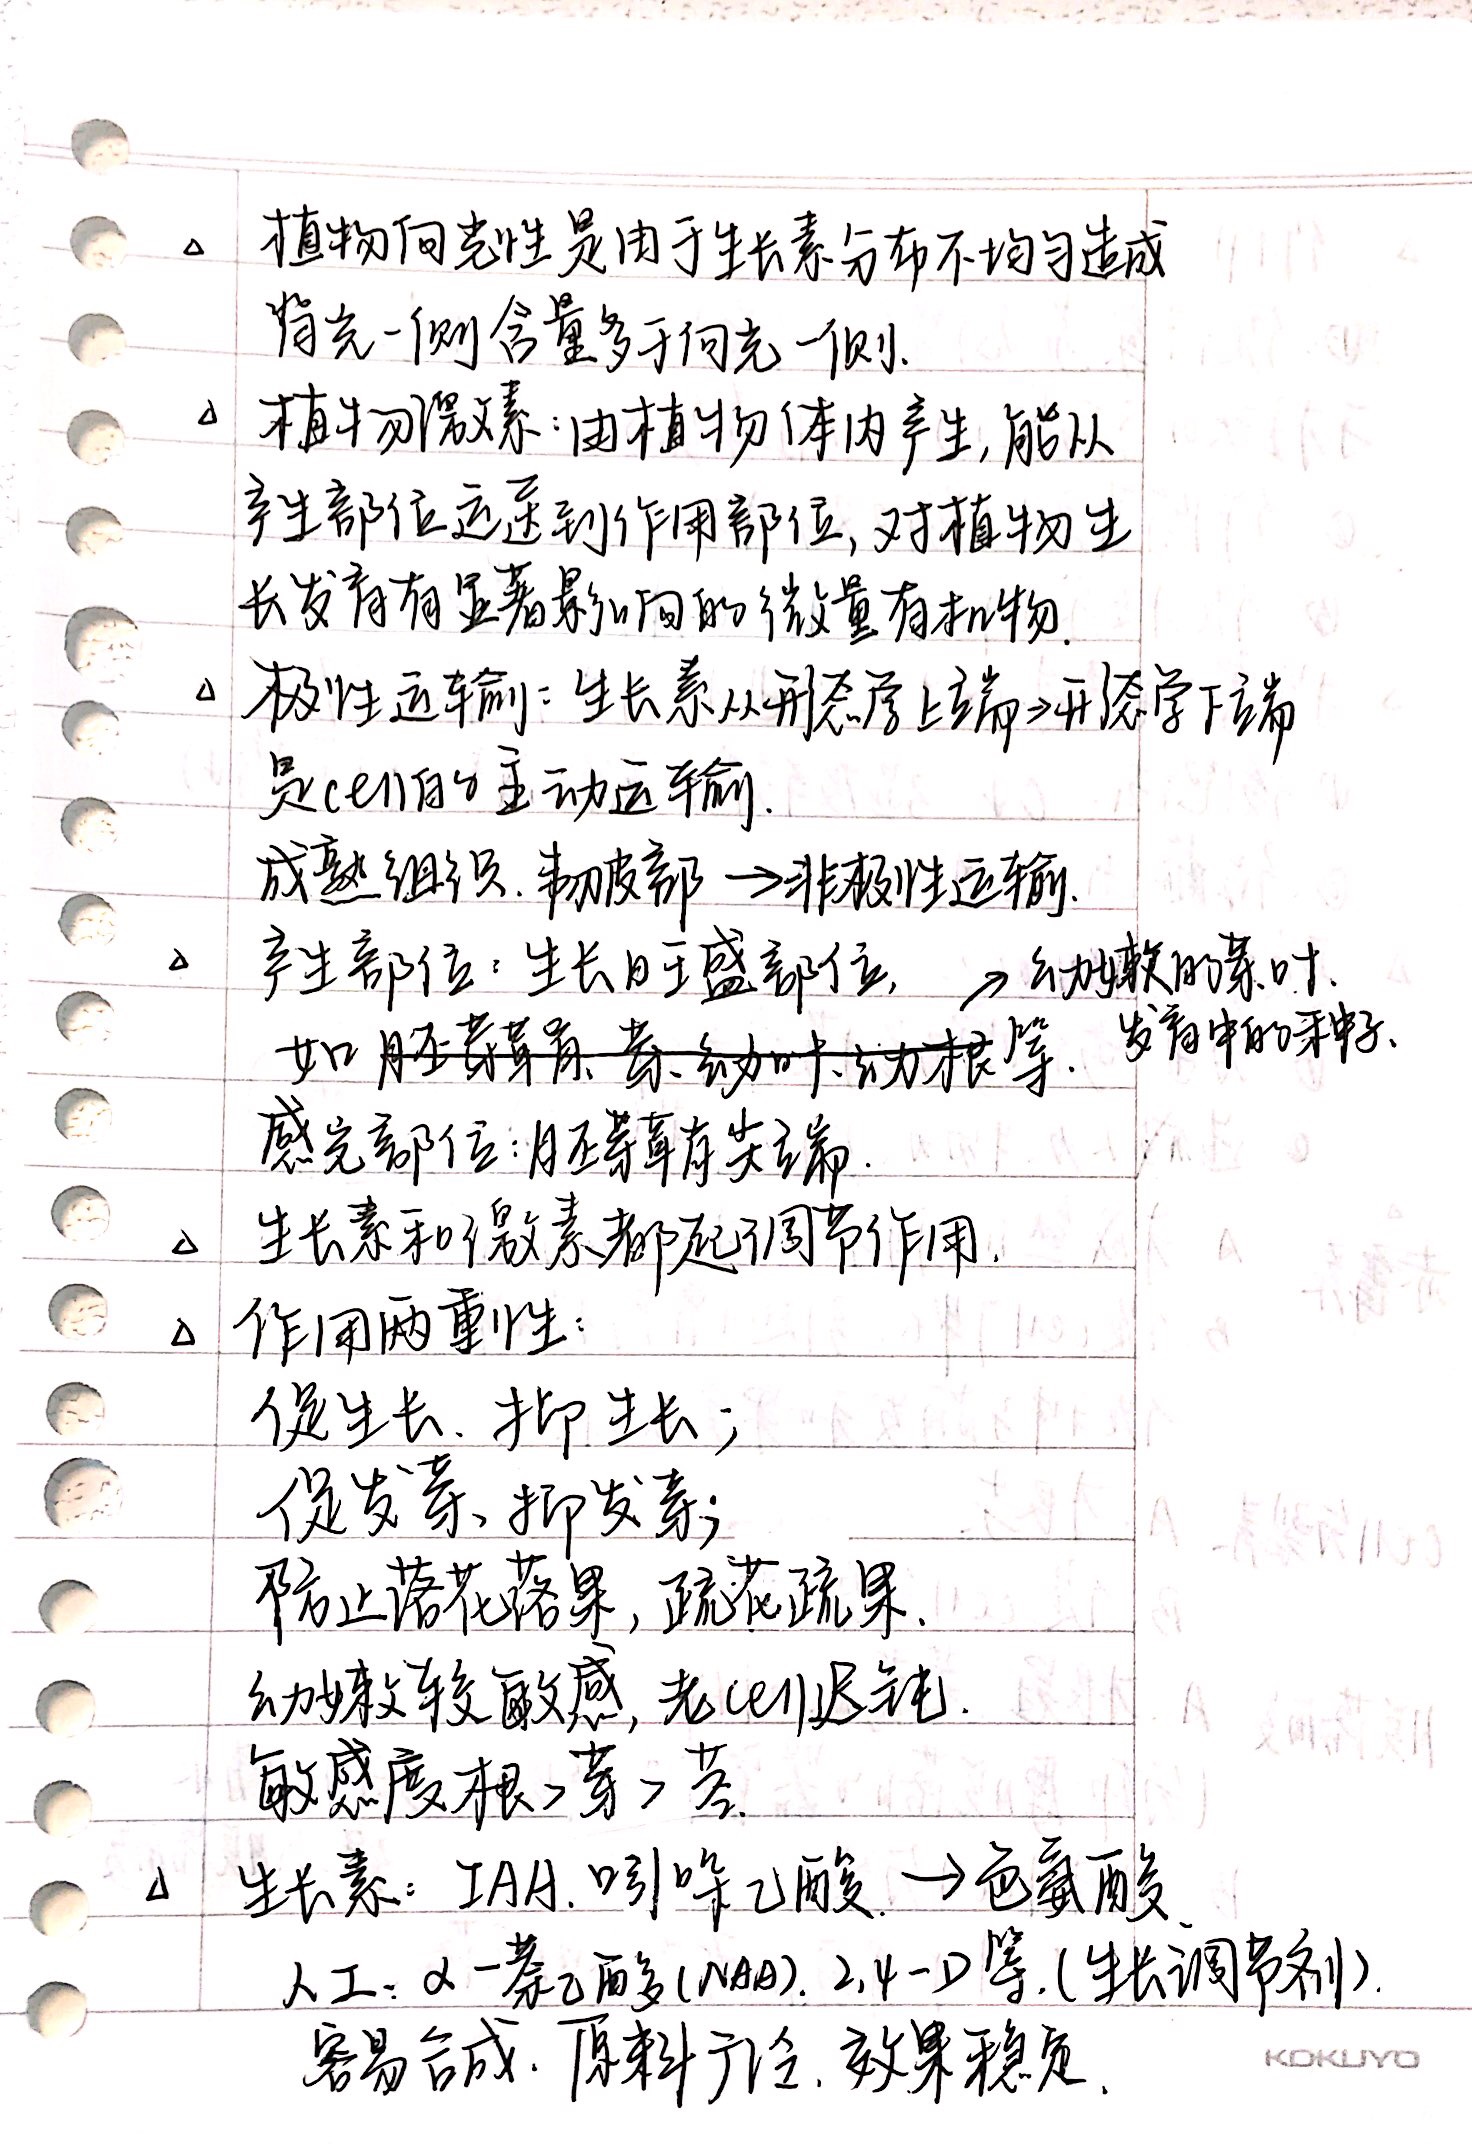 △ 植物向光性是由于生长素分布不均匀造成
背光一侧含量多于向光一侧.
△ 植物激素:由植物体内产生,能从
产生部位运送到作用部位,对植物生
长发育有显著影响的微量有机物.
△ 极性运输:生长素从形态学上端→形态学下端
是cell的主动运输.
成熟组织.韧皮部→非极性运输.
△ 产生部位:生长旺盛部位, → 幼嫩的芽.叶.
如胚芽鞘.芽、幼叶、幼根等. 发育中的种子.
感光部位:胚芽鞘尖端.
△ 生长素和激素都起调节作用.
△ 作用两重性:
促生长、抑生长;
促发芽、抑发芽;
防止落花落果,疏花疏果.
幼嫩较敏感,老cell迟钝.
敏感度根>芽>茎.
△ 生长素: IAA.吲哚乙酸.→色氨酸.
人工:α-萘乙酸(NAA).2,4-D等.(生长调节剂).
容易合成.原料广泛.效果稳定.
KOKUYO